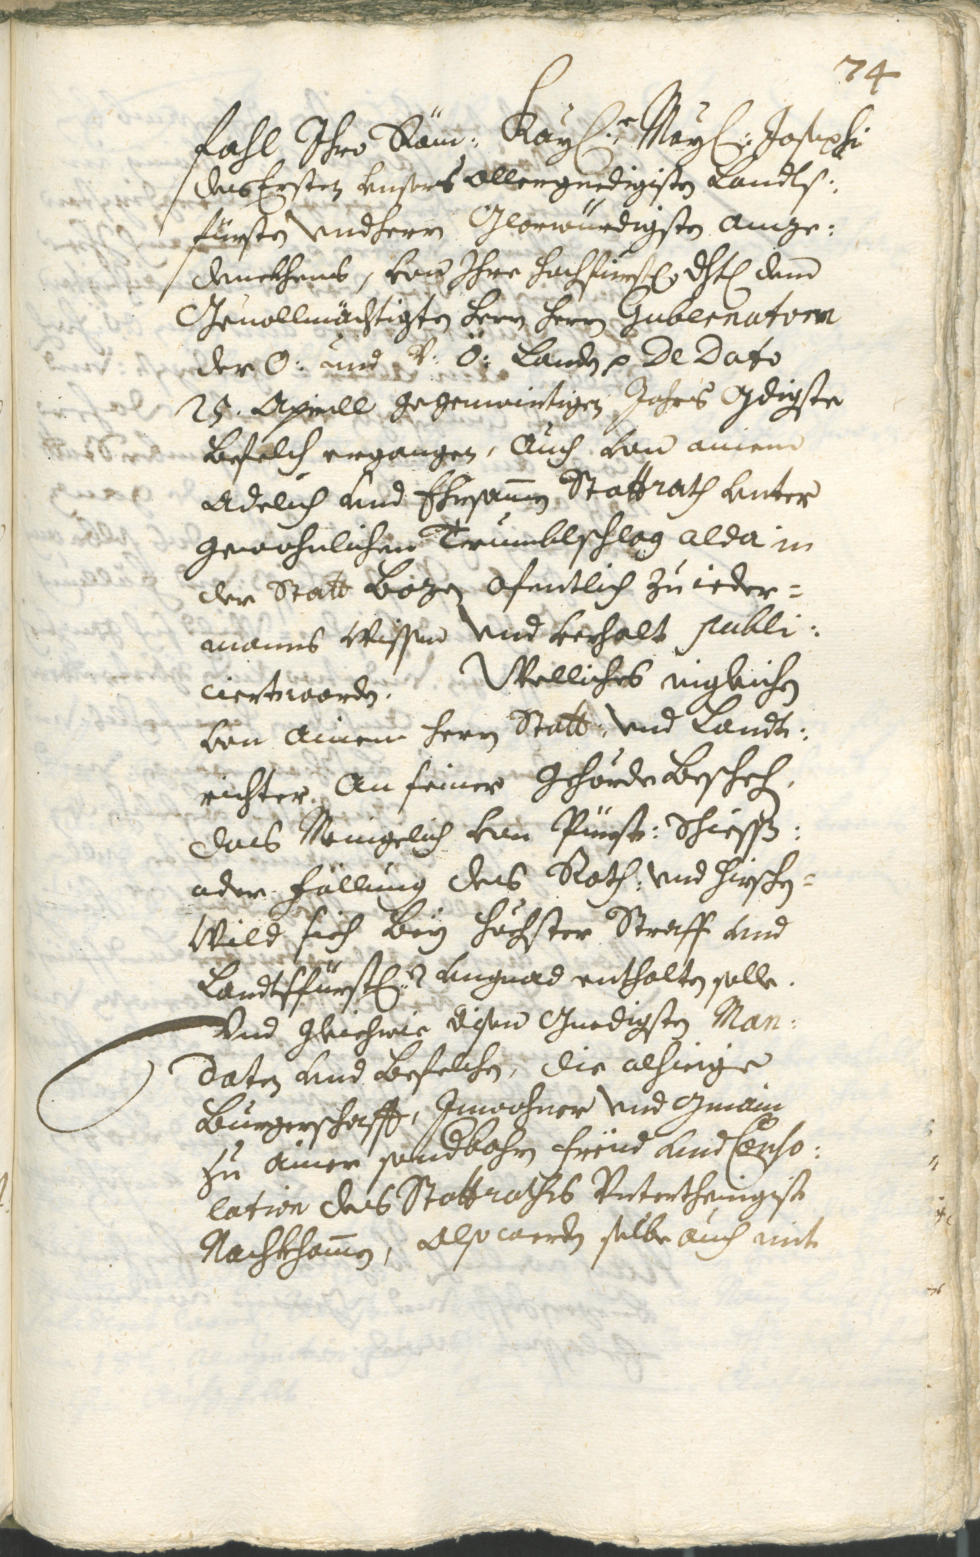 74
fahl Ihro Röm: Kay: May: Josephi
des Ersten unsers allergnedigisten Landts:
fürsten und herrn Glorwürdigsten ange:
denckhens, von Ihro hochfürstl: dhtl dem
Gevollmächtigten herrn herrn Gubernatorn
der O: und V: Ö: Landen De Dato
25. Aprill gegenwirtigen Jahrs Gdigste
Befelch ergangen, Auch von ainem
Adelich und Ehrsamen Stattrath unter
gewohnlichen Trumblschlag alda in
der Statt Bozen ofentlich zu ieder=
manns Wissen und verhalt publi:
ciert worden. Welliches ingleichen
von ainem herrn Statt: und Landt:
richter. An seiner gehörde Beschech,
das Meingelich von Pürst: Schiess:
oder fällung des Roth: und hirschen=
Wild sich bey höchster Straff und
Landtsfürstl: ungnad enthalten solle.
Und gleichwie disen Gnedigsten Man:
daten und Befelchen, die alhieige
Burgerschafft, Inwohner und Gmain
zu ainer sondbahrn freud und Conso:
lation des Stattraths Untertheinigist
Nachkhomen, also werden selbe auch mit